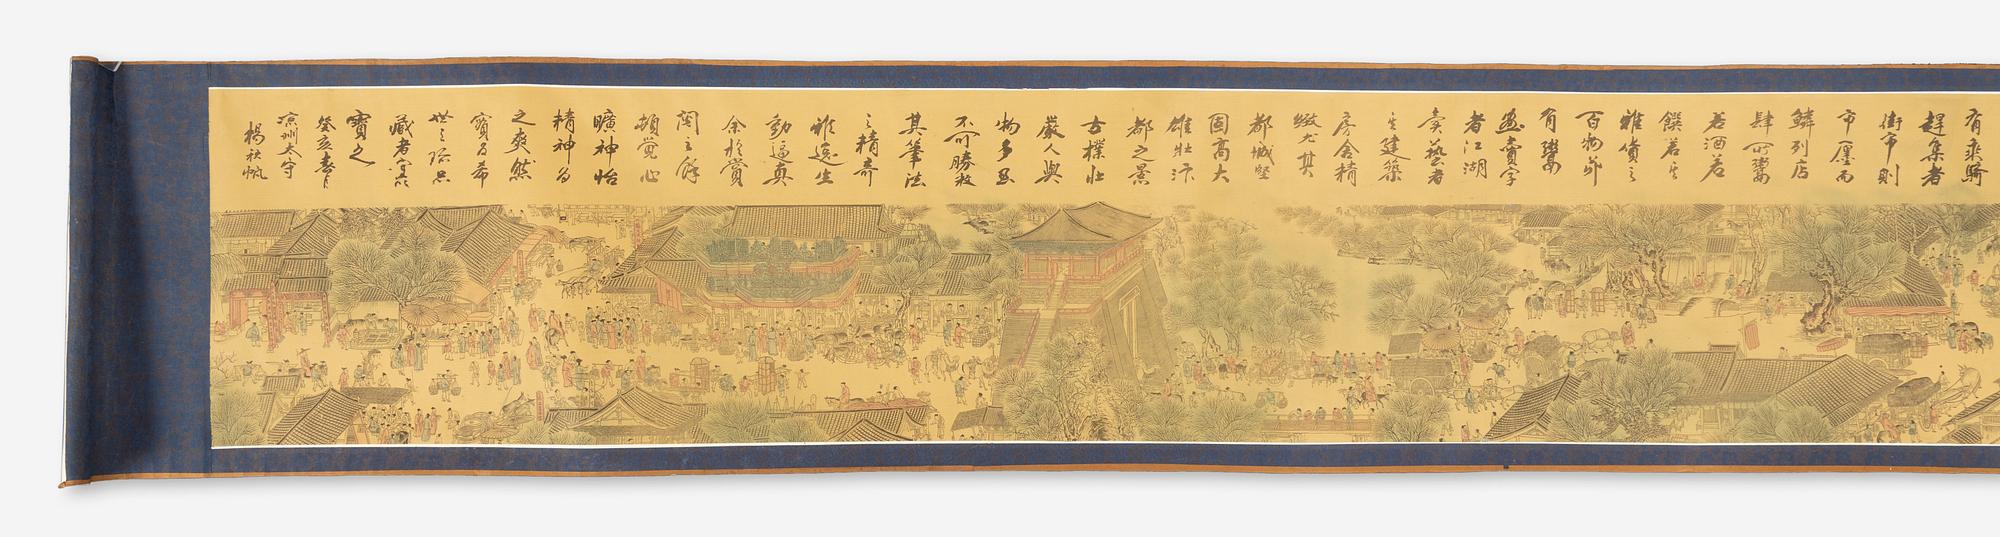 有乘騎
趕集者
街市則
市廛而
鱗列店
肆所鬻
若酒若
饌若其
雜貨之
百物節
有鬻
畫賣字
者江湖
賣藝者
其建築
房舍精
緻尤其
都城堅
固高大
雄壯汴
都之景
古樸壯
嚴人與
物多至
不可勝數
其筆法
之精奇
雅逸生
動逼真
余於賞
閱之餘
頓覺心
曠神怡
精神為
之爽然
寶為希
世之珍品
藏者宜
寶之
癸亥春月
涼州太守
楊秋帆